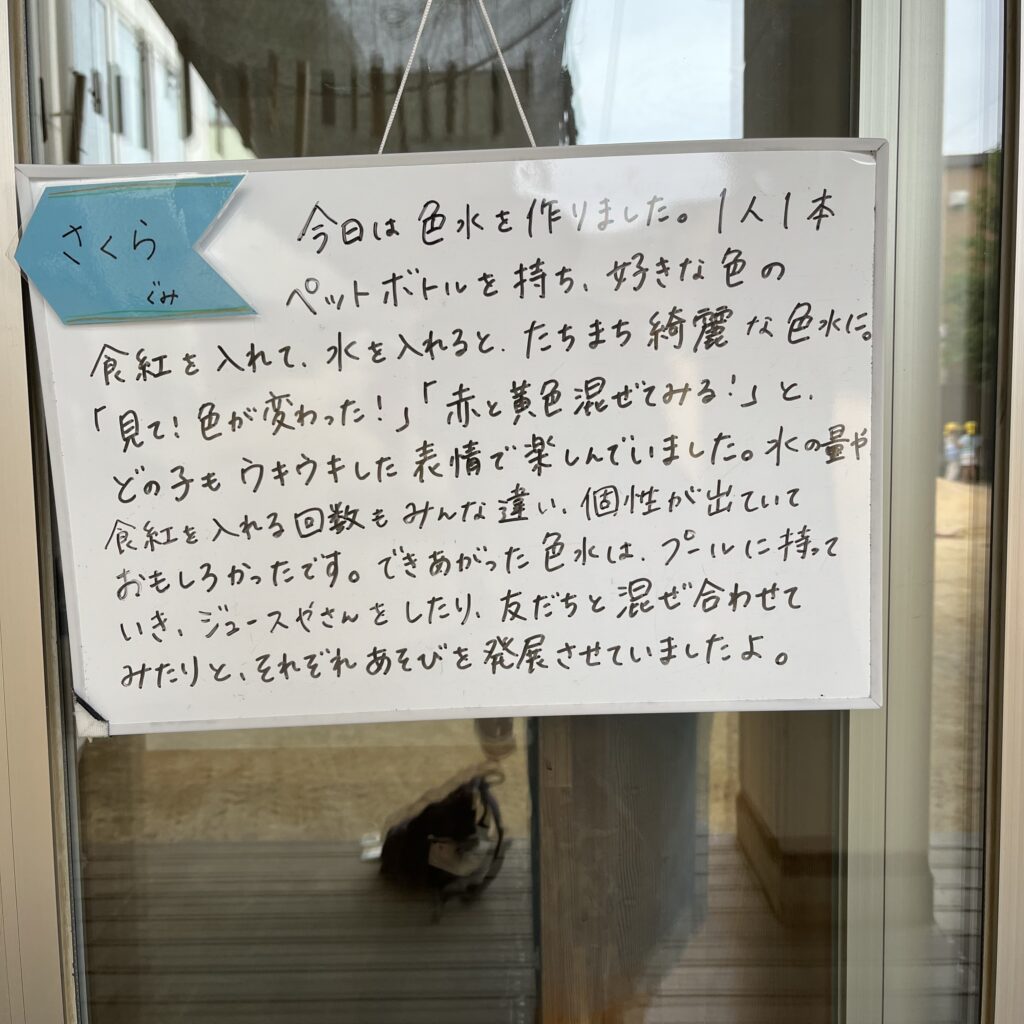 さくら
ぐみ
今日は色水を作りました。1人1本
ペットボトルを持ち、好きな色の
食紅を入れて、水を入れると、たちまち綺麗な色水に。
「見て!色が変わった!」「赤と黄色混ぜてみる!」と、
どの子もウキウキした表情で楽しんでいました。水の量や
食紅を入れる回数もみんな違い、個性が出ていて
おもしろかったです。できあがった色水は、プールに持って
いき、ジュースやさんをしたり、友だちと混ぜ合わせて
みたりと、それぞれあそびを発展させていましたよ。